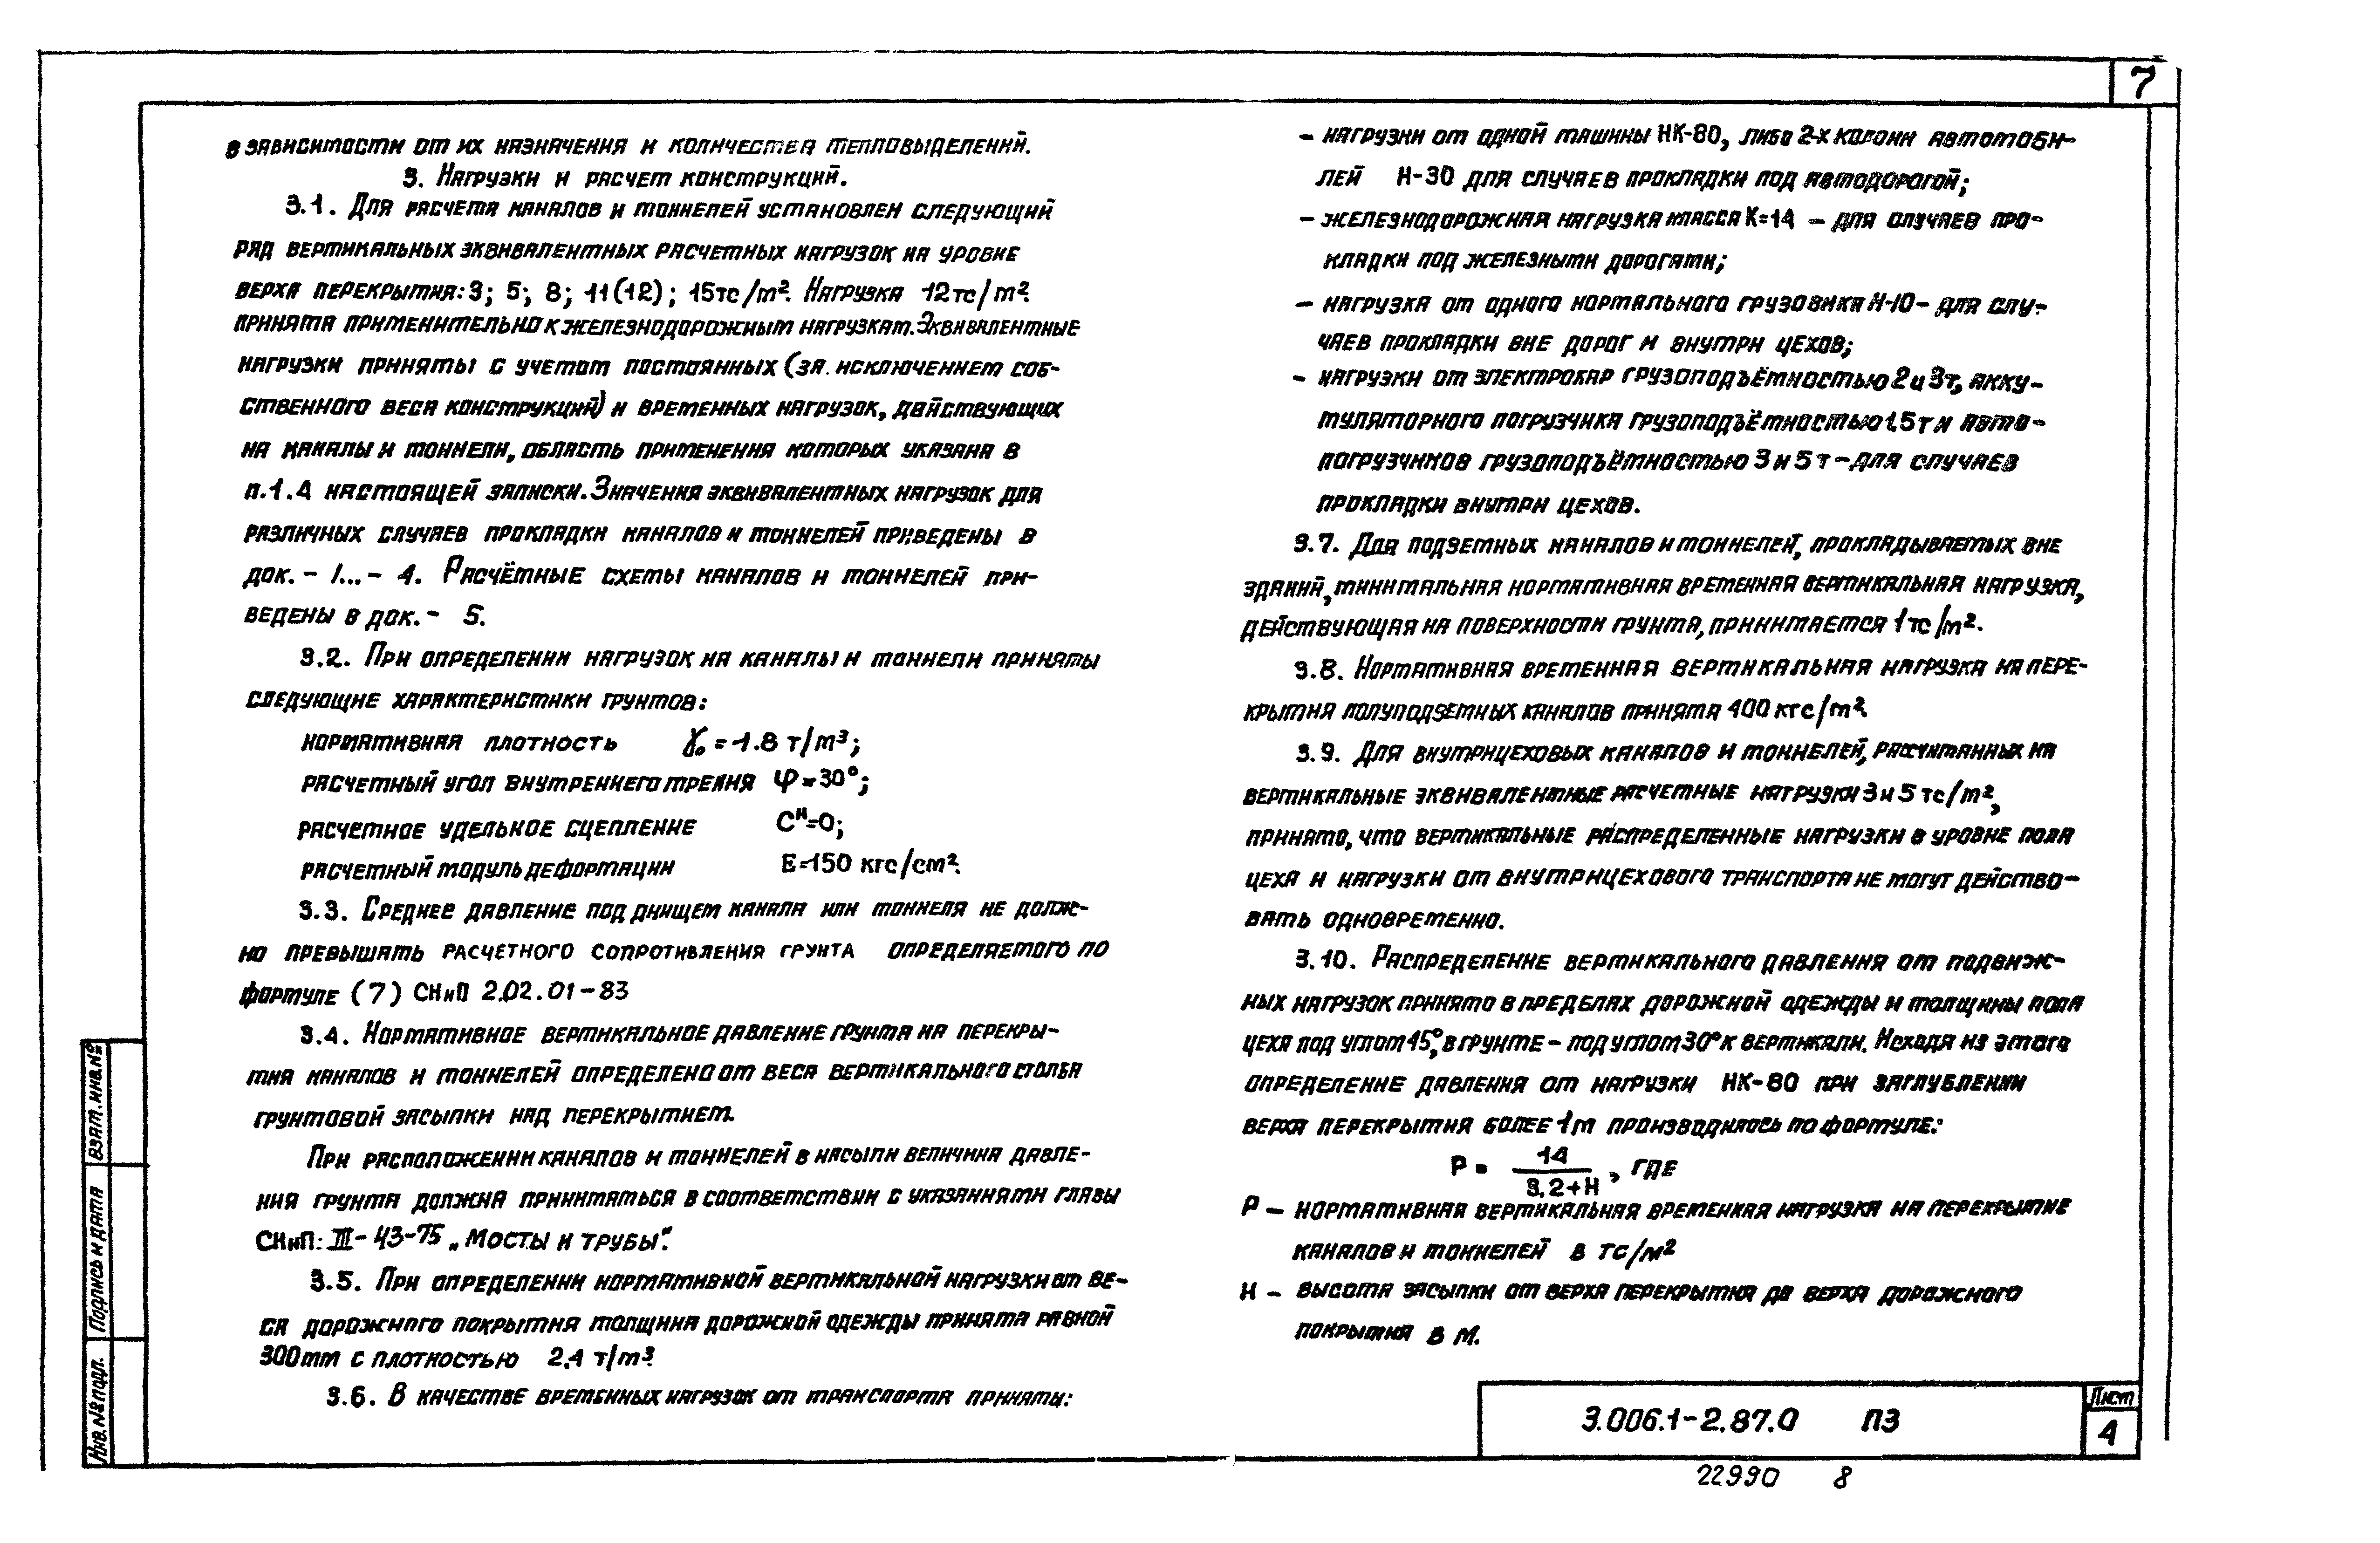 7
в зависимости от их назначения и количества тепловыделений.
3. Нагрузки и расчет конструкций.
3.1. Для расчета каналов и тоннелей установлен следующий
ряд вертикальных эквивалентных расчетных нагрузок на уровне
верха перекрытия: 3; 5; 8; 11(12); 15тс/м². Нагрузка 12тс/м².
принята применительно к железнодорожным нагрузкам. Эквивалентные
нагрузки приняты с учетом постоянных (за исключением соб-
ственного веса конструкций) и временных нагрузок, действующих
на каналы и тоннели, область применения которых указана в
п.1.4 настоящей записки. Значения эквивалентных нагрузок для
различных случаев прокладки каналов и тоннелей приведены в
док. - 1...- 4. Расчётные схемы каналов и тоннелей при-
ведены в док. - 5.
3.2. При определении нагрузок на каналы и тоннели приняты
следующие характеристики грунтов:
нормативная плотность γ₀ = 1.8 т/м³;
расчетный угол внутреннего трения φ = 30°;
расчетное удельное сцепление Cᴴ=0;
расчетный модуль деформации E=150 кгс/см².
3.3. Среднее давление под днищем канала или тоннеля не долж-
но превышать расчетного сопротивления грунта определяемого по
формуле (7) СНиП 2.02.01-83
3.4. Нормативное вертикальное давление грунта на перекры-
тия каналов и тоннелей определено от веса вертикального столба
грунтовой засыпки над перекрытием.
При расположении каналов и тоннелей в насыпи величина давле-
ния грунта должна приниматься в соответствии с указаниями главы
СНиП: III-43-75 „Мосты и трубы".
3.5. При определении нормативной вертикальной нагрузки от ве-
са дорожного покрытия толщина дорожной одежды принята равной
300мм с плотностью 2.4 т/м³.
3.6. В качестве временных нагрузок от транспорта приняты:
- нагрузки от одной машины НК-80, либо 2-х колонн автомоби-
лей Н-30 для случаев прокладки под автодорогой;
- железнодорожная нагрузка класса К=14 - для случаев про-
кладки под железными дорогами;
- нагрузка от одного нормального грузовика Н-10 - для слу-
чаев прокладки вне дорог и внутри цехов;
- нагрузки от электрокар грузоподъёмностью 2 и 3т, акку-
муляторного погрузчика грузоподъёмностью 1,5т и авто-
погрузчиков грузоподъёмностью 3 и 5 т - для случаев
прокладки внутри цехов.
3.7. Для подземных каналов и тоннелей, прокладываемых вне
зданий, минимальная нормативная временная вертикальная нагрузка,
действующая на поверхности грунта, принимается 1 тс/м².
3.8. Нормативная временная вертикальная нагрузка на пере-
крытия полуподземных каналов принята 400 кгс/м².
3.9. Для внутрицеховых каналов и тоннелей, рассчитанных на
вертикальные эквивалентные расчетные нагрузки 3 и 5 тс/м²,
принято, что вертикальные распределенные нагрузки в уровне пола
цеха и нагрузки от внутрицехового транспорта не могут действо-
вать одновременно.
3.10. Распределение вертикального давления от подвиж-
ных нагрузок принято в пределах дорожной одежды и толщины пола
цеха под углом 45°, в грунте - под углом 30° к вертикали. Исходя из этого
определение давления от нагрузки НК-80 при заглублении
верха перекрытия более 1м производилось по формуле:
P = 14 / 3,2+H , где
P - нормативная вертикальная временная нагрузка на перекрытие
каналов и тоннелей в тс/м²
H - высота засыпки от верха перекрытия до верха дорожного
покрытия в м.
Взам. инв. №
Подпись и дата
Инв. № подл.
3.006.1-2.87.0 ПЗ
Лист
4
22990 8